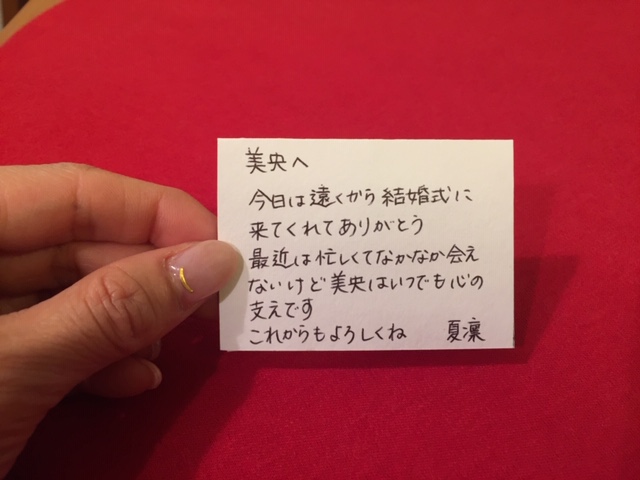 美央へ
今日は遠くから結婚式に
来てくれてありがとう
最近は忙しくてなかなか会え
ないけど美央はいつでも心の
支えです
これからもよろしくね 夏凜